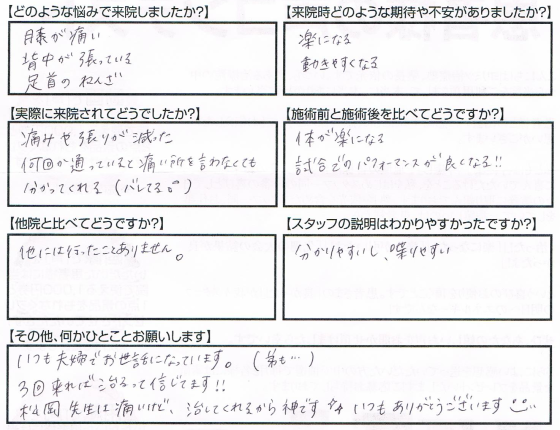 【どのような悩みで来院しましたか?】
膝が痛い
背中が張っている
足首のねんざ
【来院時どのような期待や不安がありましたか?】
楽になる
動きやすくなる
【実際に来院されてどうでしたか?】
痛みや張りが減った
何回か通っていると痛い所を言わなくても
分かってくれる(バレてる
【施術前と施術後を比べてどうですか?】
体が楽になる
試合でのパフォーマンスが良くなる!!
【他院と比べてどうですか?】
他には行ったことありません。
【スタッフの説明はわかりやすかったですか?】
分かりやすいし、喋りやすい
【その他、何かひとことお願いします】
いつも夫婦でお世話になっています。(弟も…)
3回来れば治るって信じてます!!
松岡先生は痛いけど、治してくれるから神です☆☆いつもありがとうございます